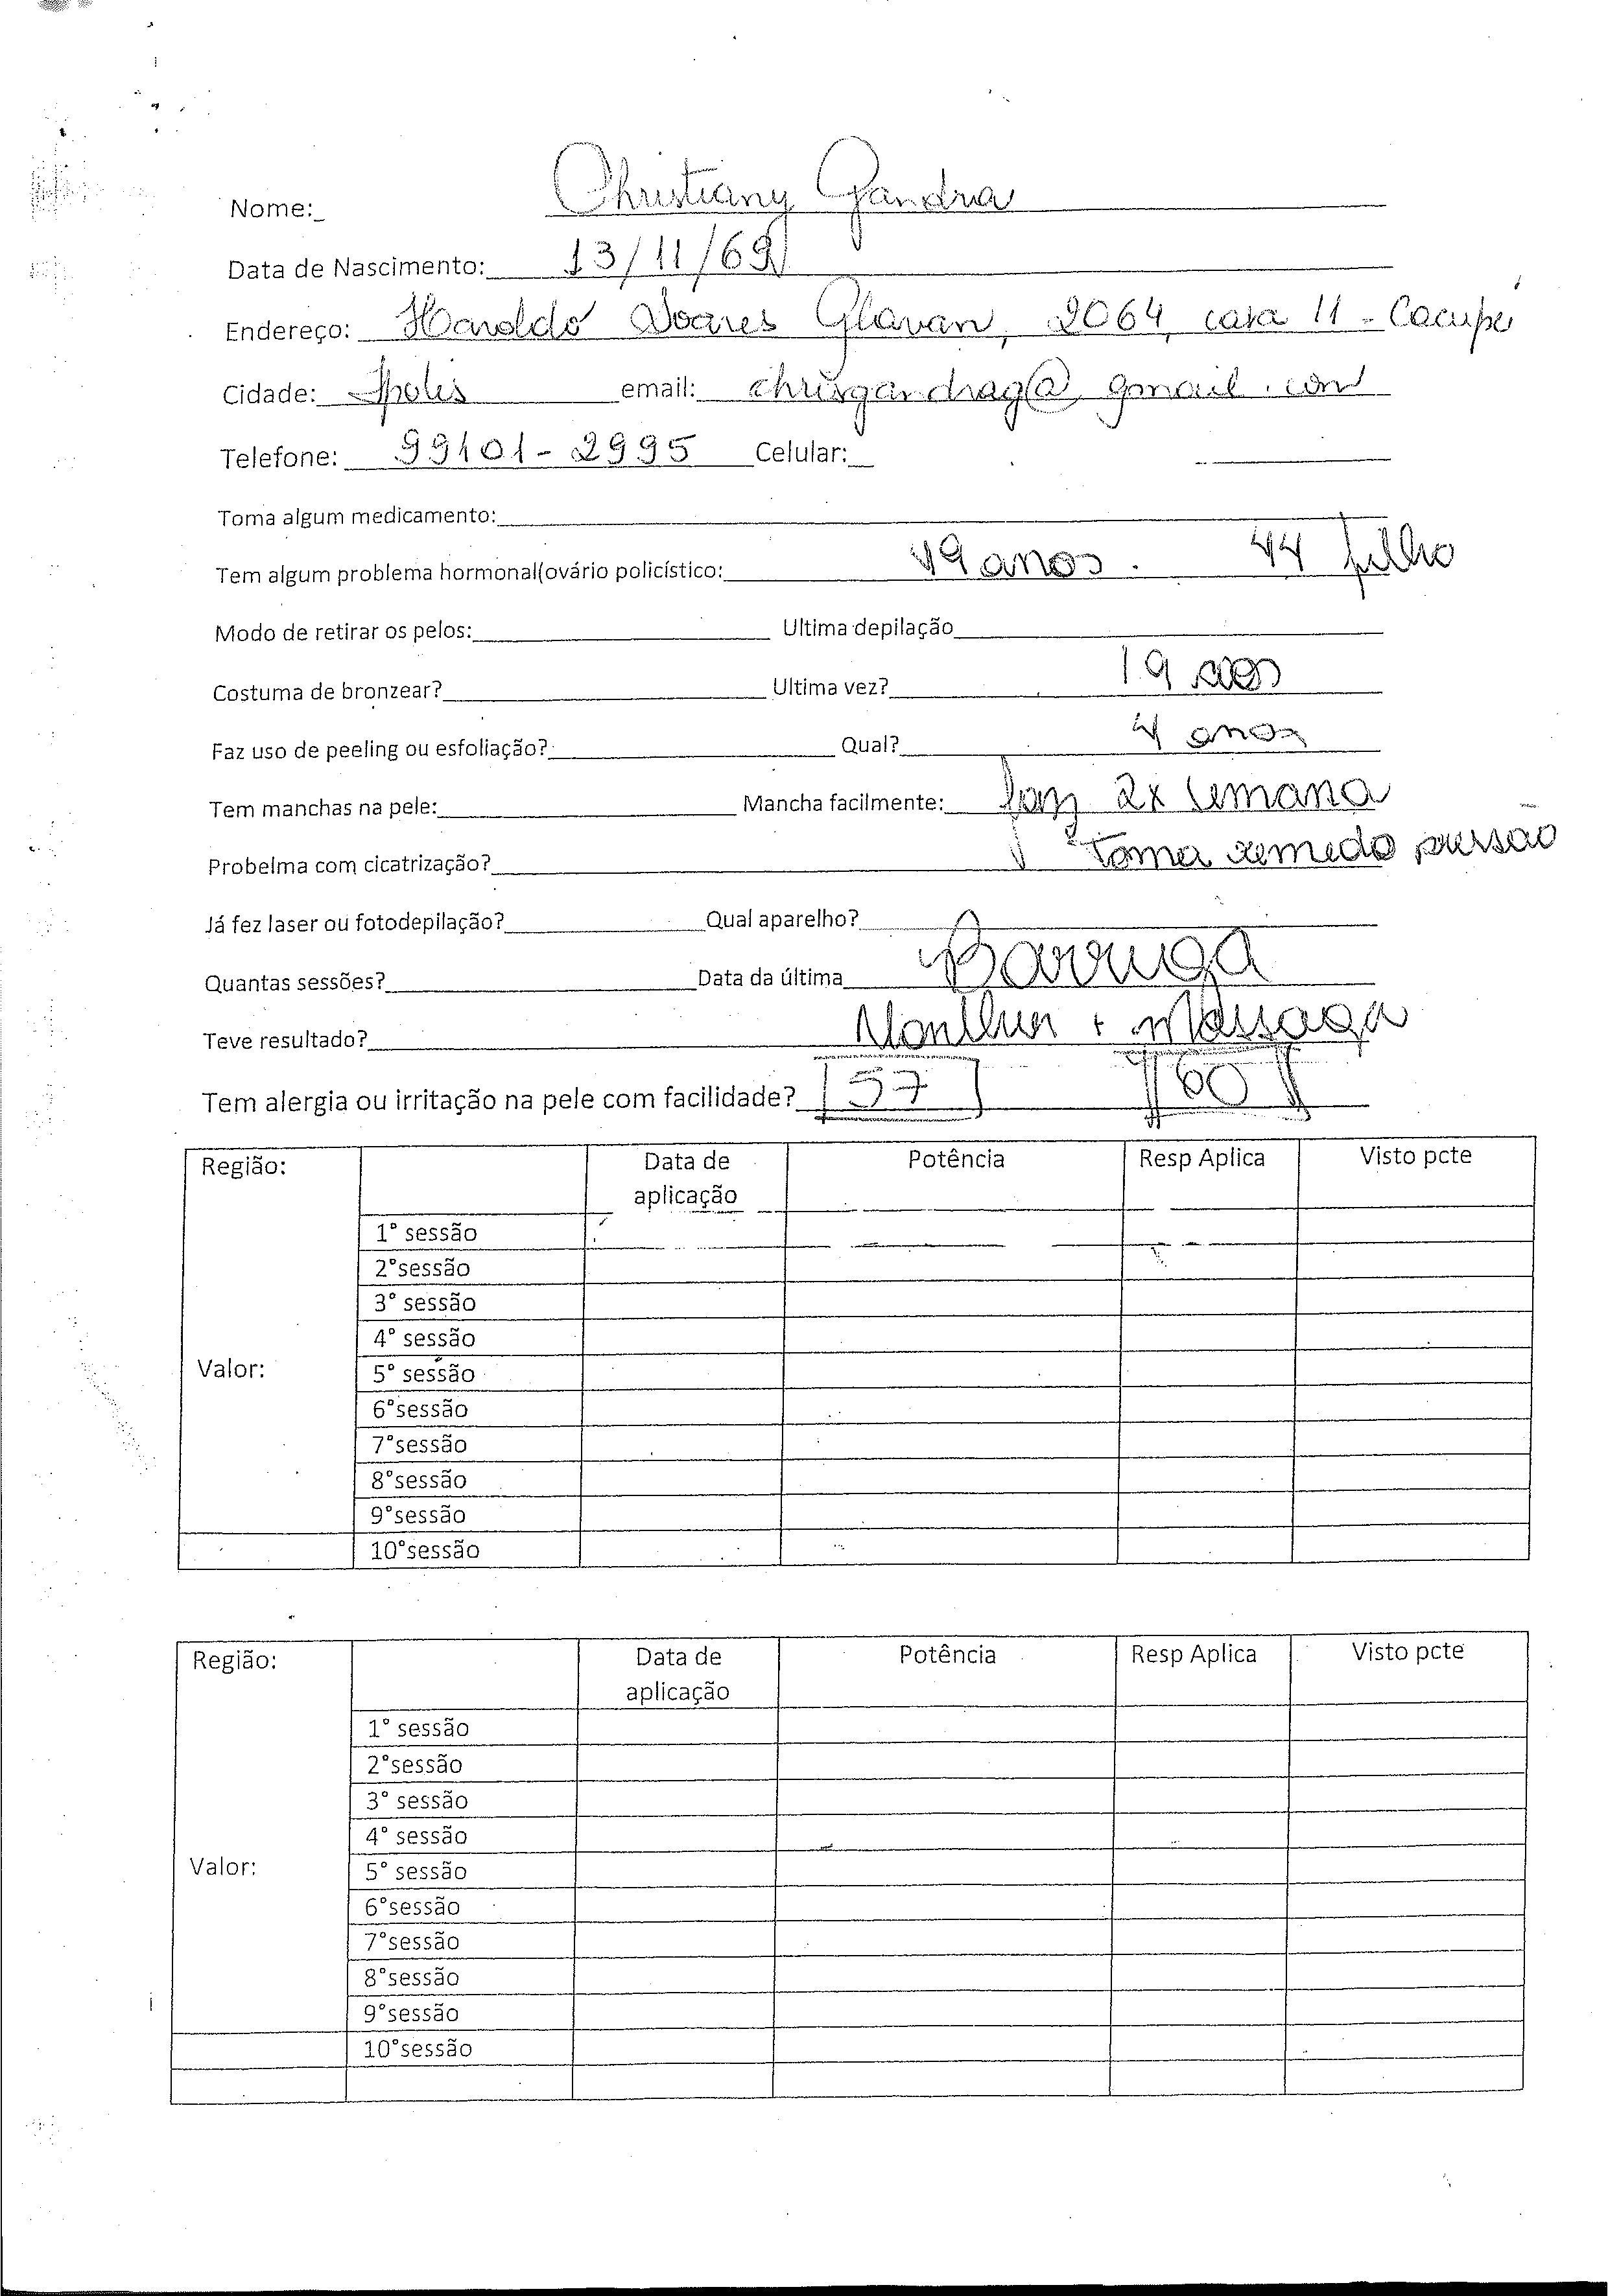 Nome: Christiany Gandra
Data de Nascimento: 13/11/69
Endereço: Haroldo Soares Glavan, 2064, casa 11 - Cacupé
Cidade: Fpolis email: chrisgandrag@gmail.com
Telefone: 99101-2995 Celular:
Toma algum medicamento:
Tem algum problema hormonal(ovário policístico: 49 anos. 44 filho
Modo de retirar os pelos: Ultima depilação
Costuma de bronzear? Ultima vez? 19 anos
Faz uso de peeling ou esfoliação? Qual? 4 anos
Tem manchas na pele: Mancha facilmente: faz 2x semana
Probelma com cicatrização? toma remedo pressão
Já fez laser ou fotodepilação? Qual aparelho?
Quantas sessões? Data da última Barriga
Teve resultado? + Massagem
Tem alergia ou irritação na pele com facilidade? 57 60
Região: Data de aplicação Potência Resp Aplica Visto pcte
1° sessão
2°sessão
3° sessão
4° sessão
Valor: 5° sessão
6°sessão
7°sessão
8°sessão
9°sessão
10°sessão
Região: Data de aplicação Potência Resp Aplica Visto pcte
1° sessão
2°sessão
3° sessão
4° sessão
Valor: 5° sessão
6°sessão
7°sessão
8°sessão
9°sessão
10°sessão